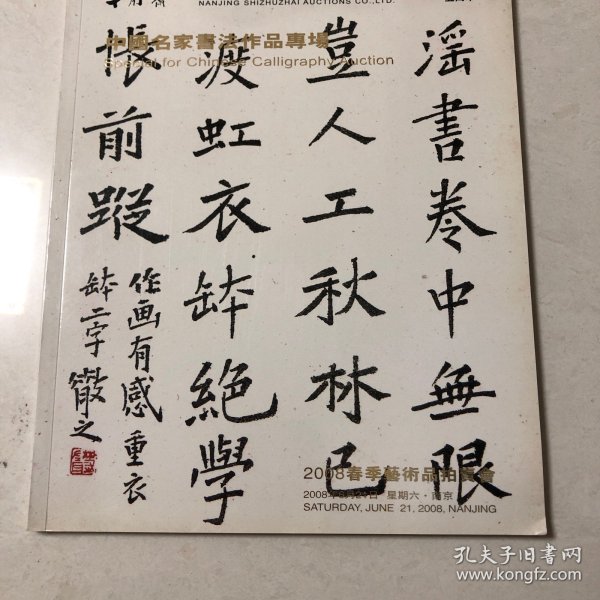 NANJING SHIZHUZHAI AUCTIONS CO.,LTD.
中國名家書法作品專場
Special for Chinese Calligraphy Auction
淫書卷中無限
豈人工秋林已
渡虹衣缽絕學
悵前蹤
作画有感 重衣
缽二字 徽之
2008春季藝術品拍賣會
2008年6月21日 星期六·南京
SATURDAY, JUNE 21, 2008, NANJING
孔夫子旧书网
www.kongfz.com